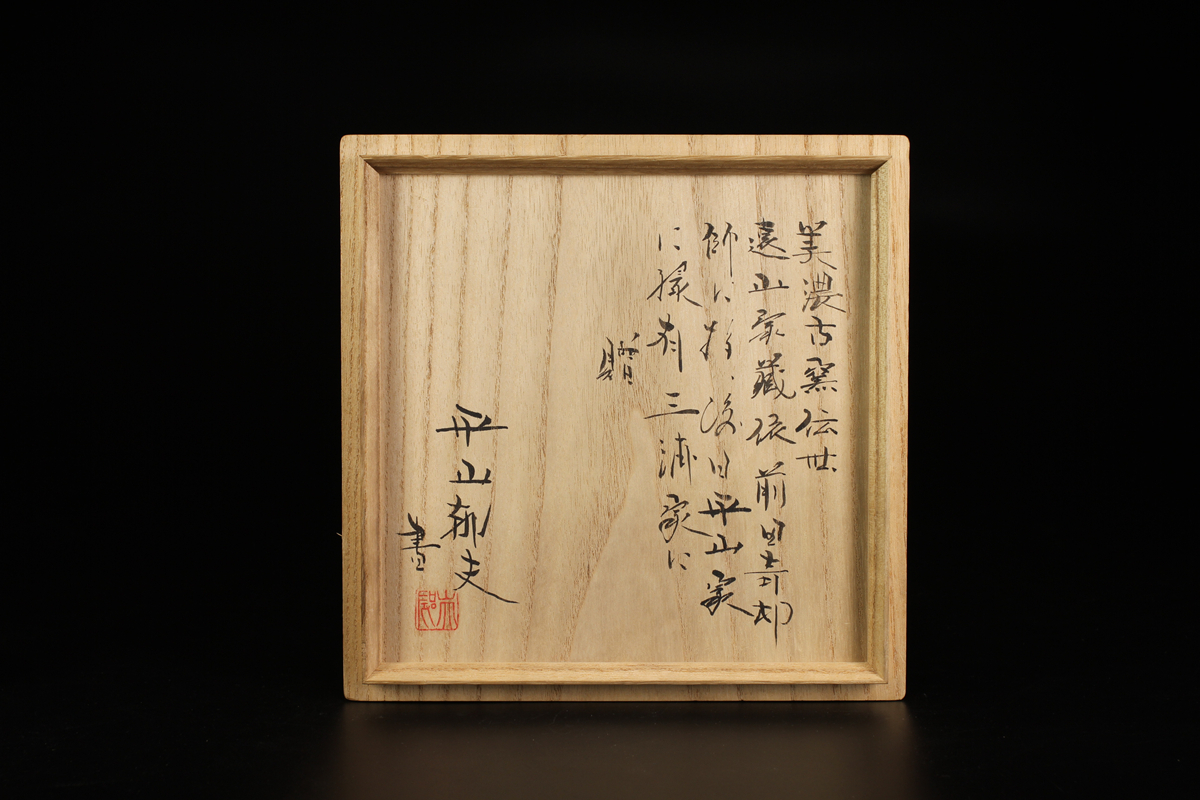 美濃古窯伝世
遠山家蔵依前田青邨
師に、後日平山家
に有三浦家に
贈
平山郁夫
書